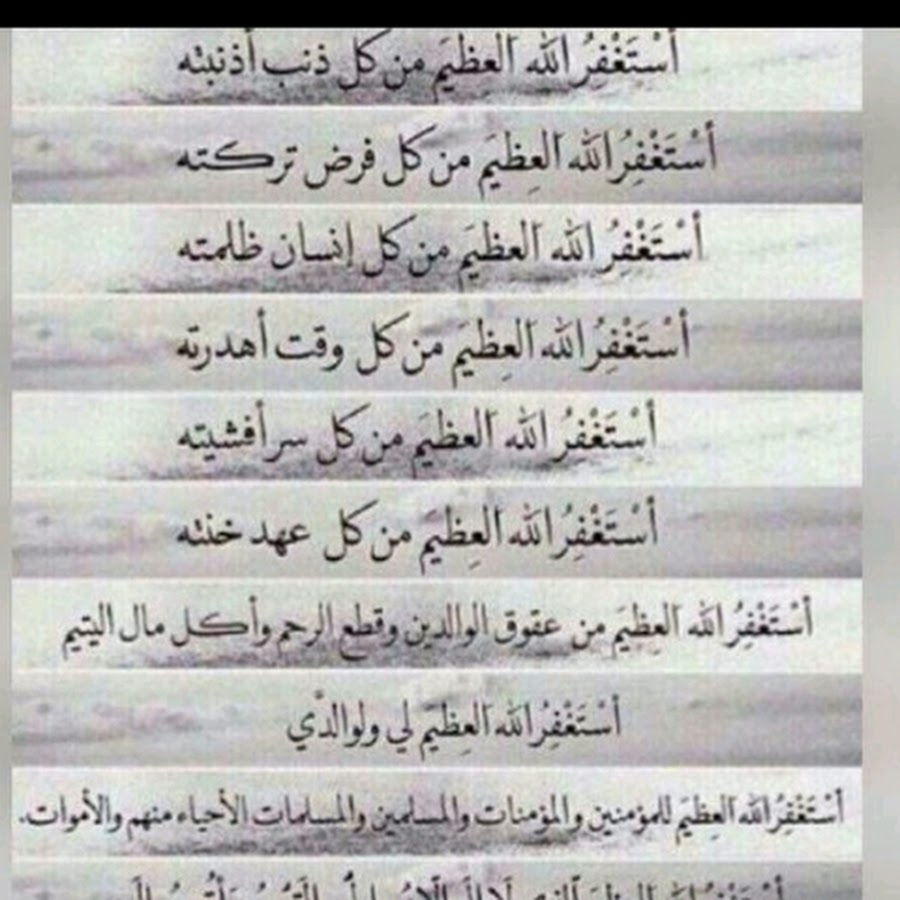 أَسْتَغْفِرُ الله العظيمَ من كل ذنب أذنبته
أَسْتَغْفِرُ الله العِظيمَ من كل فرض تركته
أَسْتَغْفِرُ الله العظيمَ من كل إنسان ظلمته
أَسْتَغْفِرُ الله العِظيمَ من كل وقت أهدرته
أَسْتَغْفِرُ الله العظيمَ من كل سر أفشيته
أَسْتَغْفِرُ الله العِظيمَ من كل عهد خنته
أَسْتَغْفِرُ الله العظيمَ من عقوق الوالدين وقطع الرحم وأكل مال اليتيم
أَسْتَغْفِرُ الله العِظيمَ لي ولوالدْي
أَسْتَغْفِرُ الله العِظيمَ للمؤمنين والمؤمنات والمسلمين والمسلمات الأحياء منهم والأموات.